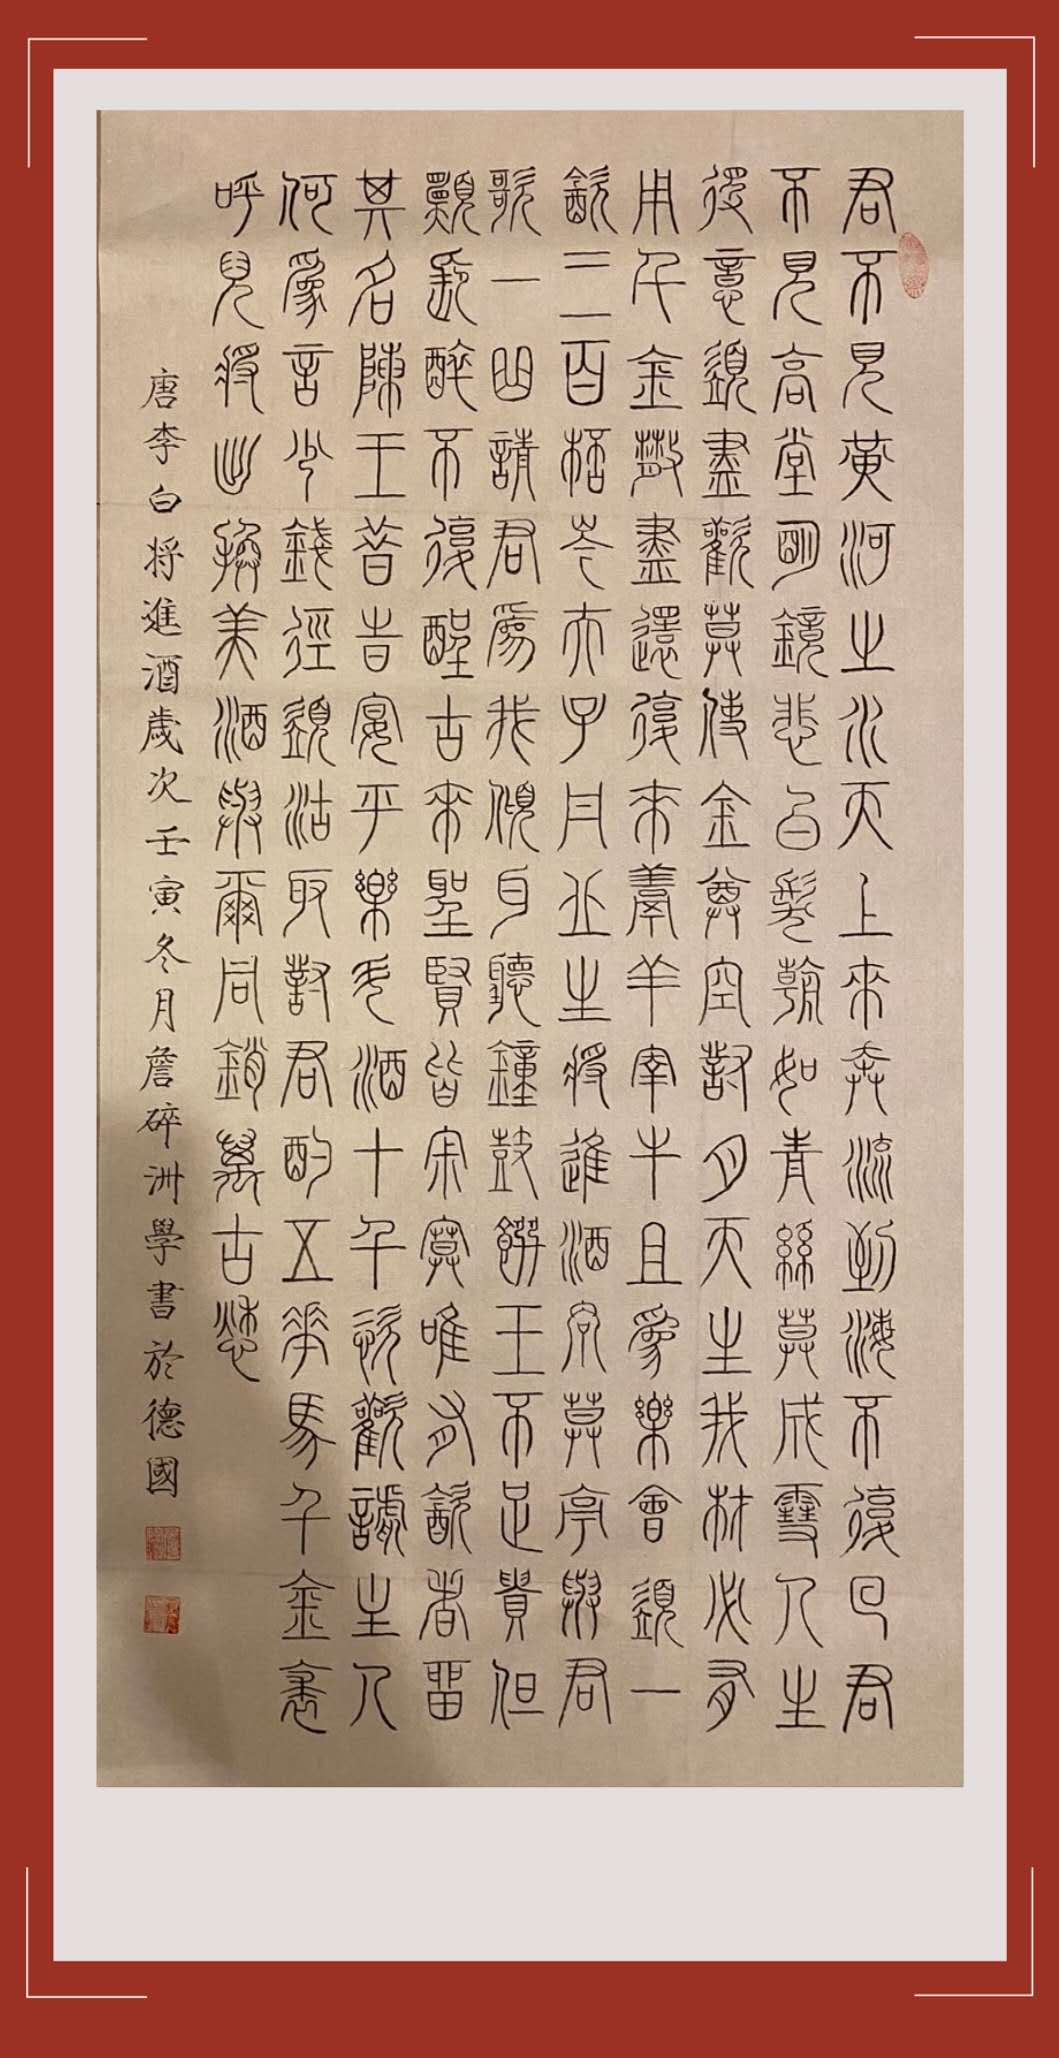 君不見黃河之水天上來奔流到海不復回君
不見高堂明鏡悲白髮朝如青絲莫成雪人生
得意須盡歡莫使金尊空對月天生我材必有
用千金散盡還復來羹羊宰牛且為樂會須一
飲三百桮岑夫子丹丘生將進酒君莫亭與君
歌一曲請君為我傾耳聽鐘鼓饌玉不足貴但
願長醉不復醒古來聖賢皆寂寞唯有飲者留
其名陳王昔旹宴平樂斗酒十千恣歡謔主人
何為言少錢徑須沽取對君酌五花馬千金裘
呼兒將出換美酒與爾同銷萬古愁
唐李白将進酒歲次壬寅冬月詹碎洲學書於德國